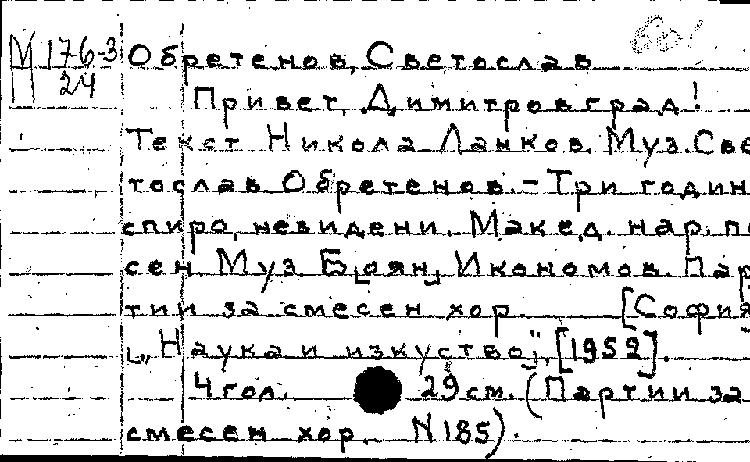 М 176-3 Обретенов, Светослав 60!
24
Привет, Димитровград!
Текст Никола Ланков. Муз. Све
тослав Обретенов. - Три годин
спиро, невидени. Макед. нар. пе
сен. Муз. Б[оян] Икономов. Пар
тии за смесен хор. [София
["Наука и изкуство]", [1952].
4 гол. 29 см. (Партии за
смесен хор. N 185).